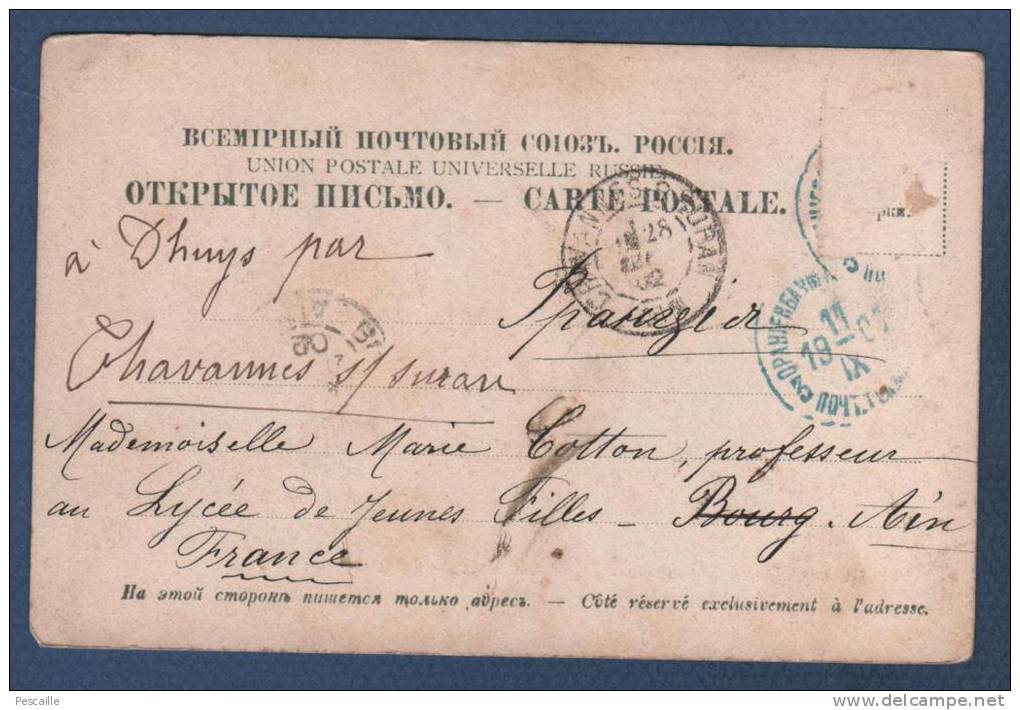 ВСЕМІРНЫЙ ПОЧТОВЫЙ СОЮЗЪ. РОССІЯ.
UNION POSTALE UNIVERSELLE RUSSIE
ОТКРЫТОЕ ПИСЬМО. — CARTE POSTALE.
à Dhuys par
CHAVANNES S SURAN
28
02
ОРАНІЕНБАУМЪ
11
19 0
IX
ПОЧТ. ТЕЛ.
Chavannes s/ suran
Mademoiselle Marie Cotton, professeur
au Lycée de Jeunes Filles – Bourg. Ain
France
На этой сторонѣ пишется только адресъ. — Côté réservé exclusivement à l'adresse.
Pescaille
www.delcampe.net